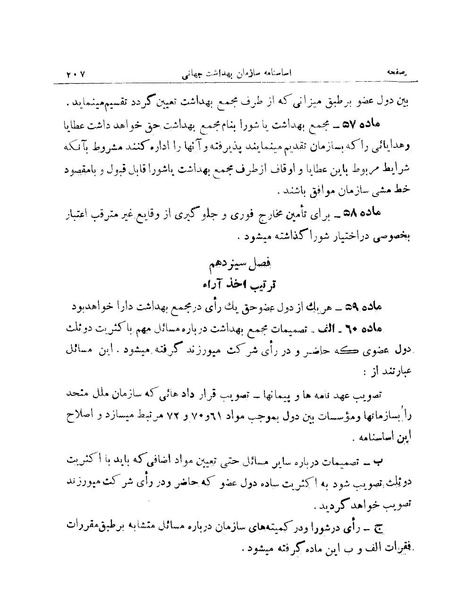 صفحه اساسنامه سازمان بهداشت جهانی ۲۰۷
بین دول عضو برطبق میزانی که از طرف مجمع بهداشت تعیین گردد تقسیم مینماید.
ماده ۵۷ ــ مجمع بهداشت یا شورا بنام مجمع بهداشت حق خواهد داشت عطایا
وهدایائی را که بسازمان تقدیم مینمایند پذیرفته و آنها را اداره کنند مشروط بآنکه
شرایط مربوط باین عطایا و اوقاف از طرف مجمع بهداشت یاشورا قابل قبول و بامقصود
خط مشی سازمان موافق باشند .
ماده ۵۸ ــ برای تأمین مخارج فوری و جلوگیری از وقایع غیر مترقب اعتبار
بخصوصی در اختیار شورا گذاشته میشود .
فصل سیزدهم
ترتیب اخذ آراء
ماده ۵۹ ــ هریك از دول عضوحق یك رأی درمجمع بهداشت دارا خواهدبود
ماده ۶۰ ــ الف . تصمیمات مجمع بهداشت درباره مسائل مهم با کثریت دوثلث
دول عضوی که حاضر و در رأی شرکت میورزند گرفته میشود . این مسائل
عبارتند از :
تصویب عهد نامه ها و پیمانها ــ تصویب قرار داد هائی که سازمان ملل متحد
را بسازمانها ومؤسسات بین دول بموجب مواد ۶۱و۷۰ و ۷۲ مرتبط میسازد و اصلاح
این اساسنامه .
ب ــ تصمیمات درباره سایر مسائل حتی تعیین مواد اضافی که باید با اکثریت
دوثلث تصویب شود به اکثریت ساده دول عضو که حاضر ودر رأی شرکت میورزند
تصویب خواهد گردید .
ج ــ رأی درشورا ودر کمیته‌های سازمان درباره مسائل متشابه برطبق مقررات
فقرات الف و ب این ماده گرفته میشود .